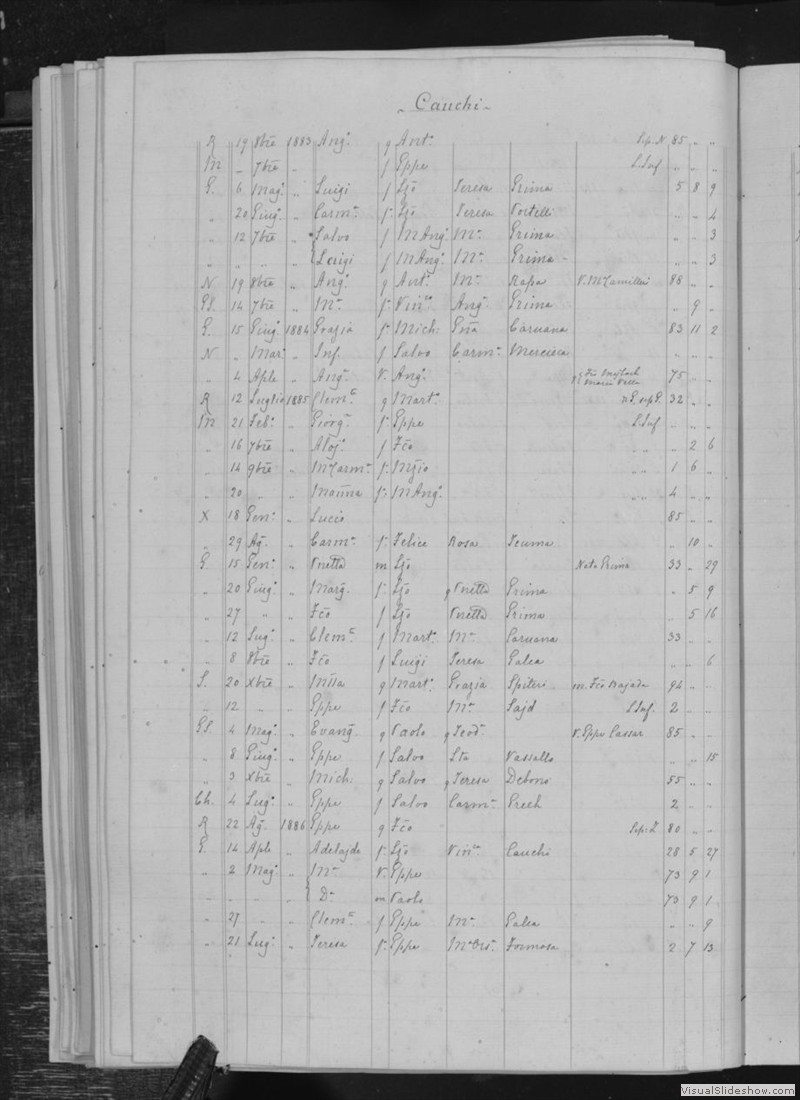 Cauchi
R 19 8bre 1883 Ang.a q Ant.o Sep. N 85 " "
M " 7bre " f Eppe S. Inf " " "
G. 6 Mag.o " Luigi f Ljo Teresa Grima 5 8 9
" 20 Giug.o " Carm.a f Ljo Teresa Portelli " " 4
" 12 7bre " Salvo f M Ang.o M.a Grima " " 3
" " " " Luigi f M Ang.o M.a Grima " " 3
N 19 8bre " Ang.a q Ant.o M.a Rapa V. M Camilleri 86 " "
14 7bre " M.a f Vin.o Ang.a Grima " 9 "
G. 15 Giug.o 1884 Grazia f Mich: Caruana 83 11 2
N " Mar.o " Inf. f Salvo Carm.a Mercieca " " "
" 4 Aple " Ang.a V. Ang.o Maria Vella 75 " "
R 12 Luglio 1885 Clem.e q Mart.o 32 " "
M 21 Feb.o " Giorg.a f Eppe S. Inf " " "
" 16 7bre " f Fco " " " 2 6
" 14 9bre " M Carm.a f " " 1 6 "
" 20 " " f M Ang.o " " 4 " "
X 18 Gen.o " Lucio 85 " "
" 29 Ag.o " Carm.a f Felice Rosa Teuma " 10 "
G. 15 Gen.o " m Ljo Nata Grima 33 " 29
" 20 Giug.o " Marg.a f Ljo q Grima " 5 9
" 27 " " Fco f Ljo Grima " 5 16
" 12 Lug.o " Clem.e f Mart.o M.a Caruana 33 " "
" 8 8bre " Fco f Luigi Teresa Galea " " 6
S. 20 Xbre " q Mart.o Grazia Spiteri m. Fco Bajada 94 " "
" 12 " " Eppe f Fco M.a Sajd S. Inf. 2 " "
4 Mag.o " Evang.a q Paolo q Teod.a V. Eppe Cassar 85 " "
" 8 Giug.o " Eppe f Salvo Vassallo " " 15
" 3 Xbre " Mich: q Salvo q Teresa Debono 55 " "
Ch. 4 Lug.o " Eppe f Salvo Carm.a Grech 2 " "
R 22 Ag.o 1886 Eppe q Fco 80 " "
G. 14 Aple " Adelajde f Ljo Vin.a Cauchi 28 5 27
" 2 Mag.o " M.a V. Eppe 73 9 1
" " " " D.a m Paolo 73 9 1
" 27 " " Clem.e f Eppe M.a Galea " " 9
" 21 Lug.o " Teresa f Eppe Formosa 2 7 13
VisualSlideshow.com